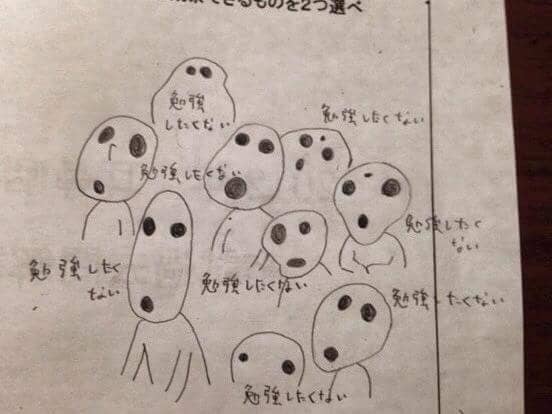 できるものを2つ選べ
勉強
したくない
勉強したくない
勉強したくない
勉強したく
ない
勉強したく
ない
勉強したくない
勉強したくない
勉強したくない